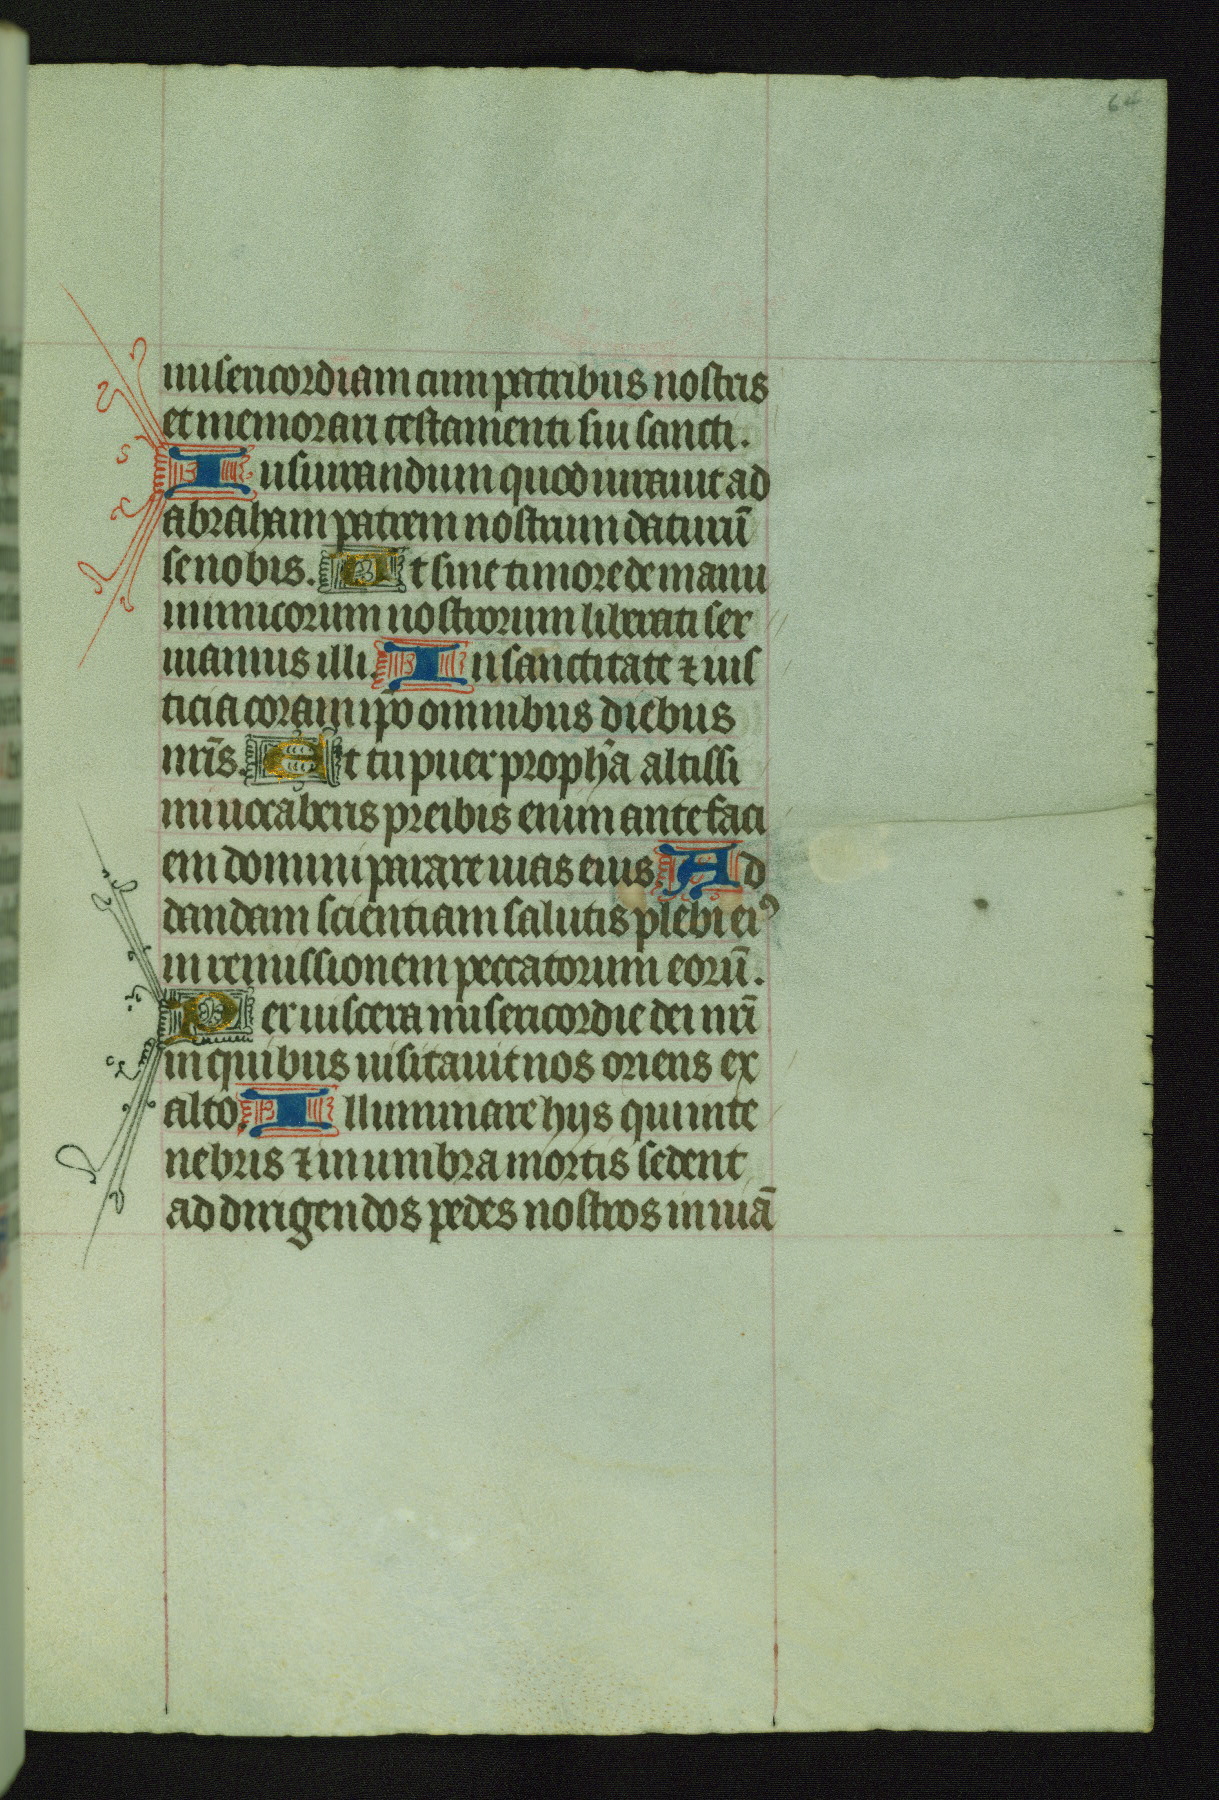 64
misericordiam cum patribus nostris
et memorari testamenti sui sancti.
Iusiurandum quod iurauit ad
abraham patrem nostrum daturū
se nobis. Vt sine timore de manu
inimicorum nostrorum liberati ser
uiamus illi. In sanctitate ⁊ ius
ticia coram ip̄o omnibus diebus
nr̄is. Et tu puer proph̄a altissi
mi uocaberis preibis enim ante faci
em domini parare uias eius. Ad
dandam scientiam salutis plebi eiꝰ
in remissionem peccatorum eorū.
Per uiscera misericordie dei nr̄i
in quibus uisitauit nos oriens ex
alto. Illuminare hijs qui in te
nebris ⁊ in umbra mortis sedent
ad dirigendos pedes nostros in uiā